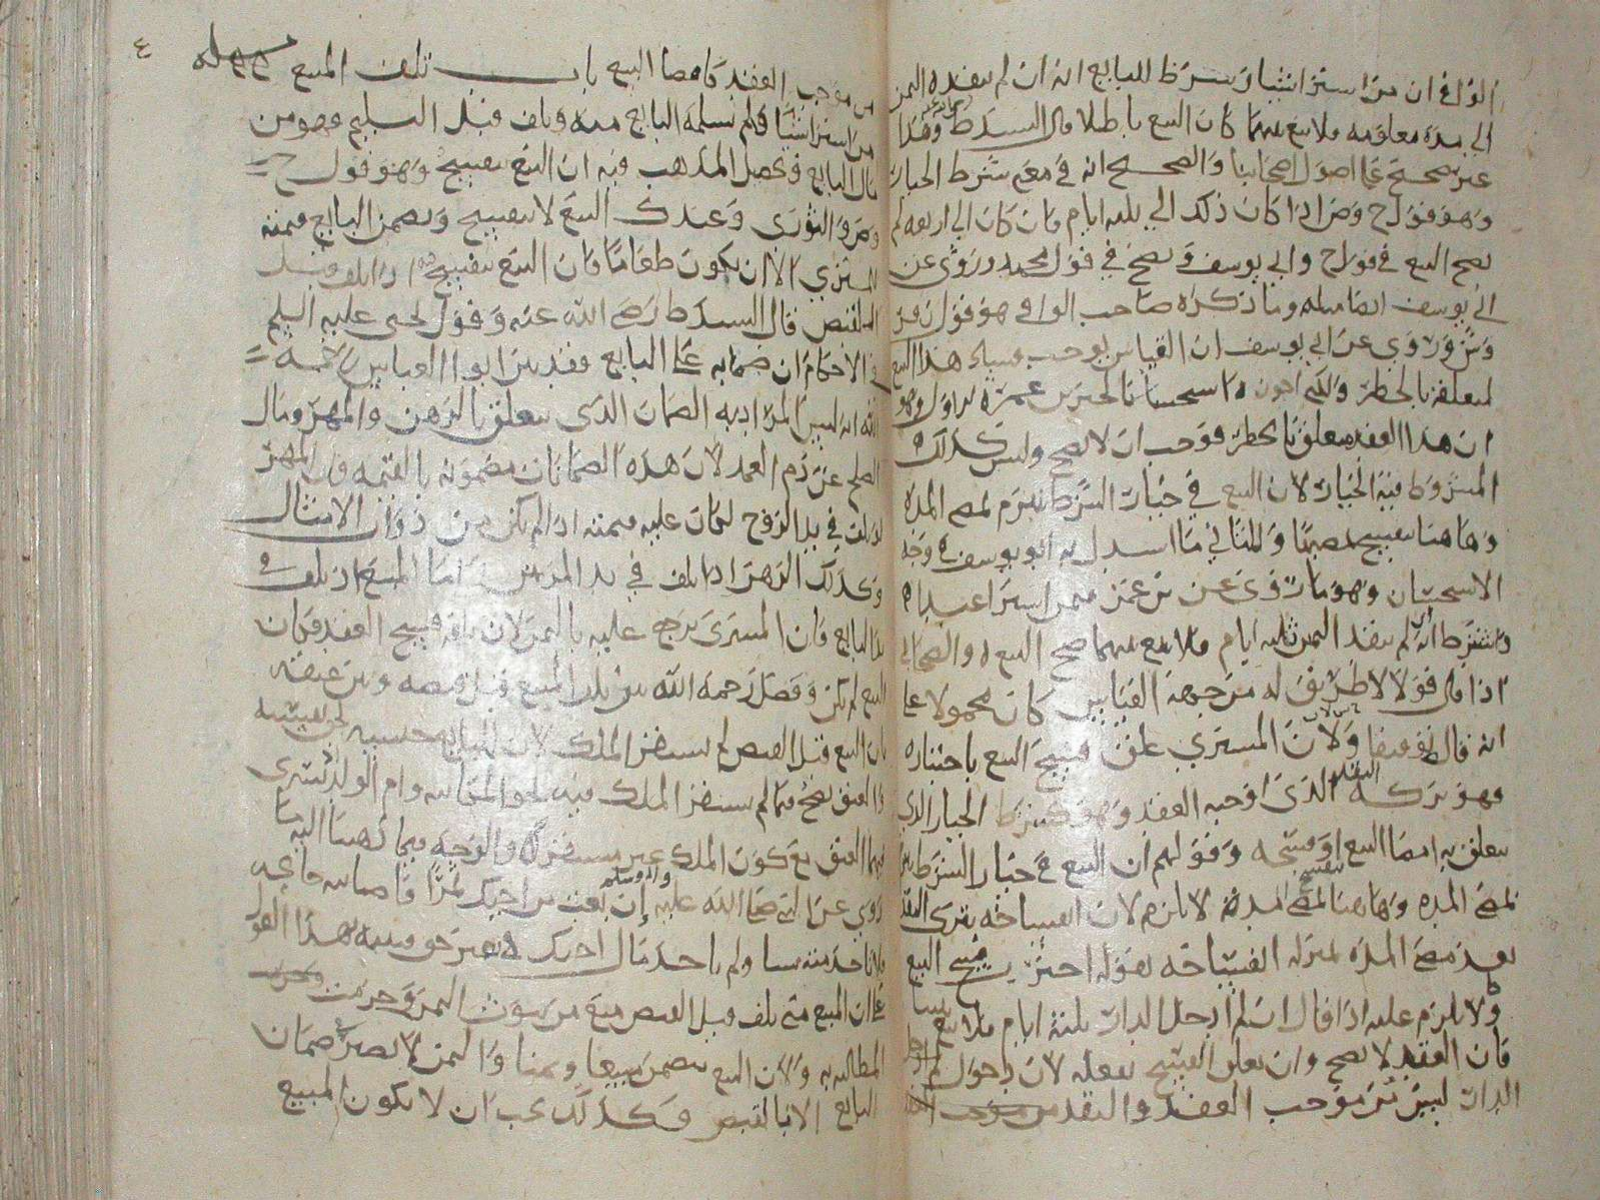 الوافي ان من اشترا شيا وشرط للبايع انه ان لم ينقده الثمن
الى مدة معلومة فلا بيع بينهما كان البيع باطلا قال السيد ط وهذا
غير صحيح على اصول اصحابنا والصحيح انه في معنى شرط الخيار
وهو قول ح وص اذا كان ذلك الى ثلثة ايام فان كان الى اربعة لم
يصح البيع في قول ح وابي يوسف ويصح في قول محمد وروي عن
ابي يوسف ايضا مثله وما ذكره صاحب الوافي هو قول زفر
وش وروي عن ابي يوسف ان القياس يوجب فساد هذا البيع
لتعلقه بالخطر
ان هذا العقد متعلق بالخطر فوجب ان لا يصح وليس كذلك
المشروط فيه الخيار لان البيع في خيار الشرط ينبرم لمضي المدة
وهاهنا ينفسخ بمضيها والثاني ما استدل به ابو يوسف وجه
الاستحسان وهو ما روي عن بن عمر فيمن اشترا عبدا
واشترط انه ان لم ينقد الثمن ثلثة ايام فلا بيع بينهما صح البيع والصحابي
اذا قال قولا لا طريق له من جهة القياس كان محمولا على
انه قاله توقيفا ولان المشتري علق فسخ البيع باختياره
وهو تركه النقد الذي اوجبه العقد وهو كشرط الخيار الذي
يتعلق به امضا البيع او فسخه وقولهم ان البيع في خيار الشرط
لمضي المدة وهاهنا ينفسخ لمضي المدة لا يلزم لان انفساخه بترك النقد
بعد مضي المدة بمنزلة انفساخه بقوله اخترت فسخ البيع
ولا يلزم عليه اذا قال ان لم ادخل الدار ثلثة ايام فلا بيع بيننا
فان العقد لا يصح وان تعلق الفسخ بفعله لان دخول
الدار ليس من موجب العقد والنقد من موجب
من موجب العقد كامضا البيع باب تلف المبيع
من اشترا شيا فلم يسلمه البايع منه وتلف قبل التسليم فهو من
مال البايع وتحصيل المذهب فيه ان البيع ينفسخ وهو قول ح
وص والثوري وعند ك البيع لا ينفسخ ويضمن البايع قيمته
للمشتري الا ان يكون طعاما فان البيع ينفسخ اذا تلف قبل
القبض قال السيد ط رضي الله عنه وقول يحيى عليه السلم
في الاحكام ان ضمانه على البايع فقد بين ابو العباس رحمه
الله انه ليس المراد به الضمان الذي يتعلق بالرهن والمهر ومال
الصلح عن دم العمد لان هذه الضمانات مضمونة بالقيمة فان المهر
لو تلف في يد الزوج لكان عليه قيمته اذا لم يكن من ذوات الامثال
وكذلك الرهن اذا تلف في يد المرتهن اما المبيع اذا تلف في
يد البايع فان المشتري يرجع عليه بالثمن لان تلفه فسخ العقد فكان
البيع لم يكن وفصل رحمه الله بين تلف المبيع قبل قبضه وبين عتقه
بان البيع قبل القبض لم يستقر الملك لان للبايع حبسه
والعتق يصح فيما لم يستقر الملك فيه نحو المكاتب وام الولد
فيهما العتق مع كون الملك غير مستقر والوجه فيما ذهبنا اليه ما
روي عن النبي صلى الله عليه واله وسلم ان بعت من اخيك ثمرا فاصابته جايحة
فلا تاخذ منه شيا ولم ياخذ مال اخيك بغير حق فنبه هذا القول
على ان المبيع متى تلف قبل القبض منع من ثبوت الثمن
المطالبة به ولان البيع يتضمن مبيعا وثمنا والثمن لا يصير ضمان
البايع الا بالقبض وكذلك يجب ان لا يكون المبيع